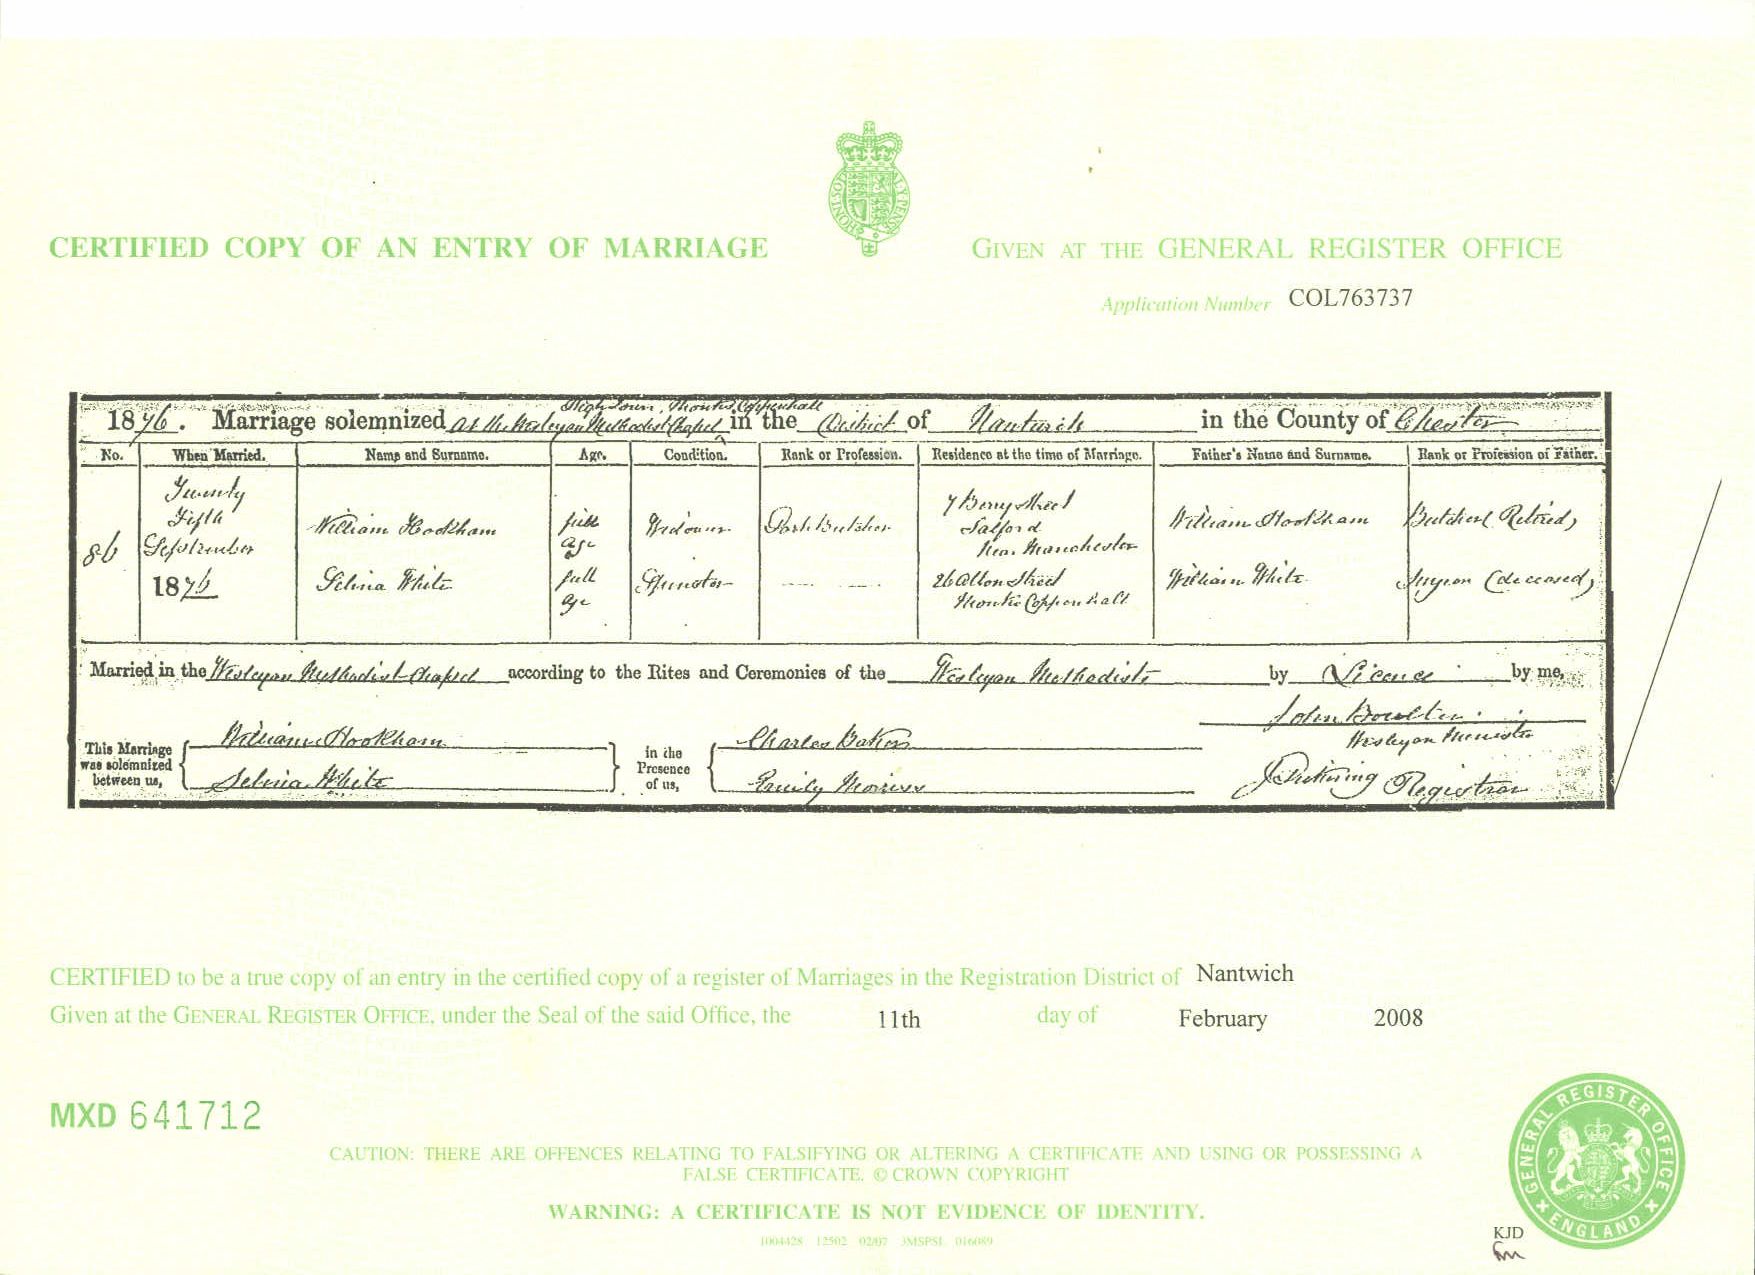 CERTIFIED COPY OF AN ENTRY OF MARRIAGE
GIVEN AT THE GENERAL REGISTER OFFICE
Application Number COL763737
High Town, Monks Coppenhall
1876. Marriage solemnized at the Wesleyan Methodist Chapel in the District of Nantwich in the County of Chester
No. When Married. Name and Surname. Age. Condition. Rank or Profession. Residence at the time of Marriage. Father's Name and Surname. Rank or Profession of Father.
86 Twenty Fifth September 1876
William Hookham full age Widower Pork Butcher 7 Berry Street Salford Near Manchester William Hookham Butcher (Retired)
Selina White full age Spinster 26 Alton Street Monks Coppenhall William White Surgeon (deceased)
Married in the Wesleyan Methodist Chapel according to the Rites and Ceremonies of the Wesleyan Methodists by Licence by me,
John Boulter
Wesleyan Minister
This Marriage was solemnized between us, William Hookham Selina White
in the Presence of us, Charles Emily
J Pickering Registrar
CERTIFIED to be a true copy of an entry in the certified copy of a register of Marriages in the Registration District of Nantwich
Given at the GENERAL REGISTER OFFICE, under the Seal of the said Office, the 11th day of February 2008
MXD 641712
CAUTION: THERE ARE OFFENCES RELATING TO FALSIFYING OR ALTERING A CERTIFICATE AND USING OR POSSESSING A
FALSE CERTIFICATE. © CROWN COPYRIGHT
WARNING: A CERTIFICATE IS NOT EVIDENCE OF IDENTITY.
1004428 12502 02/07 3MSPSL 016089
GENERAL REGISTER OFFICE
ENGLAND
KJD